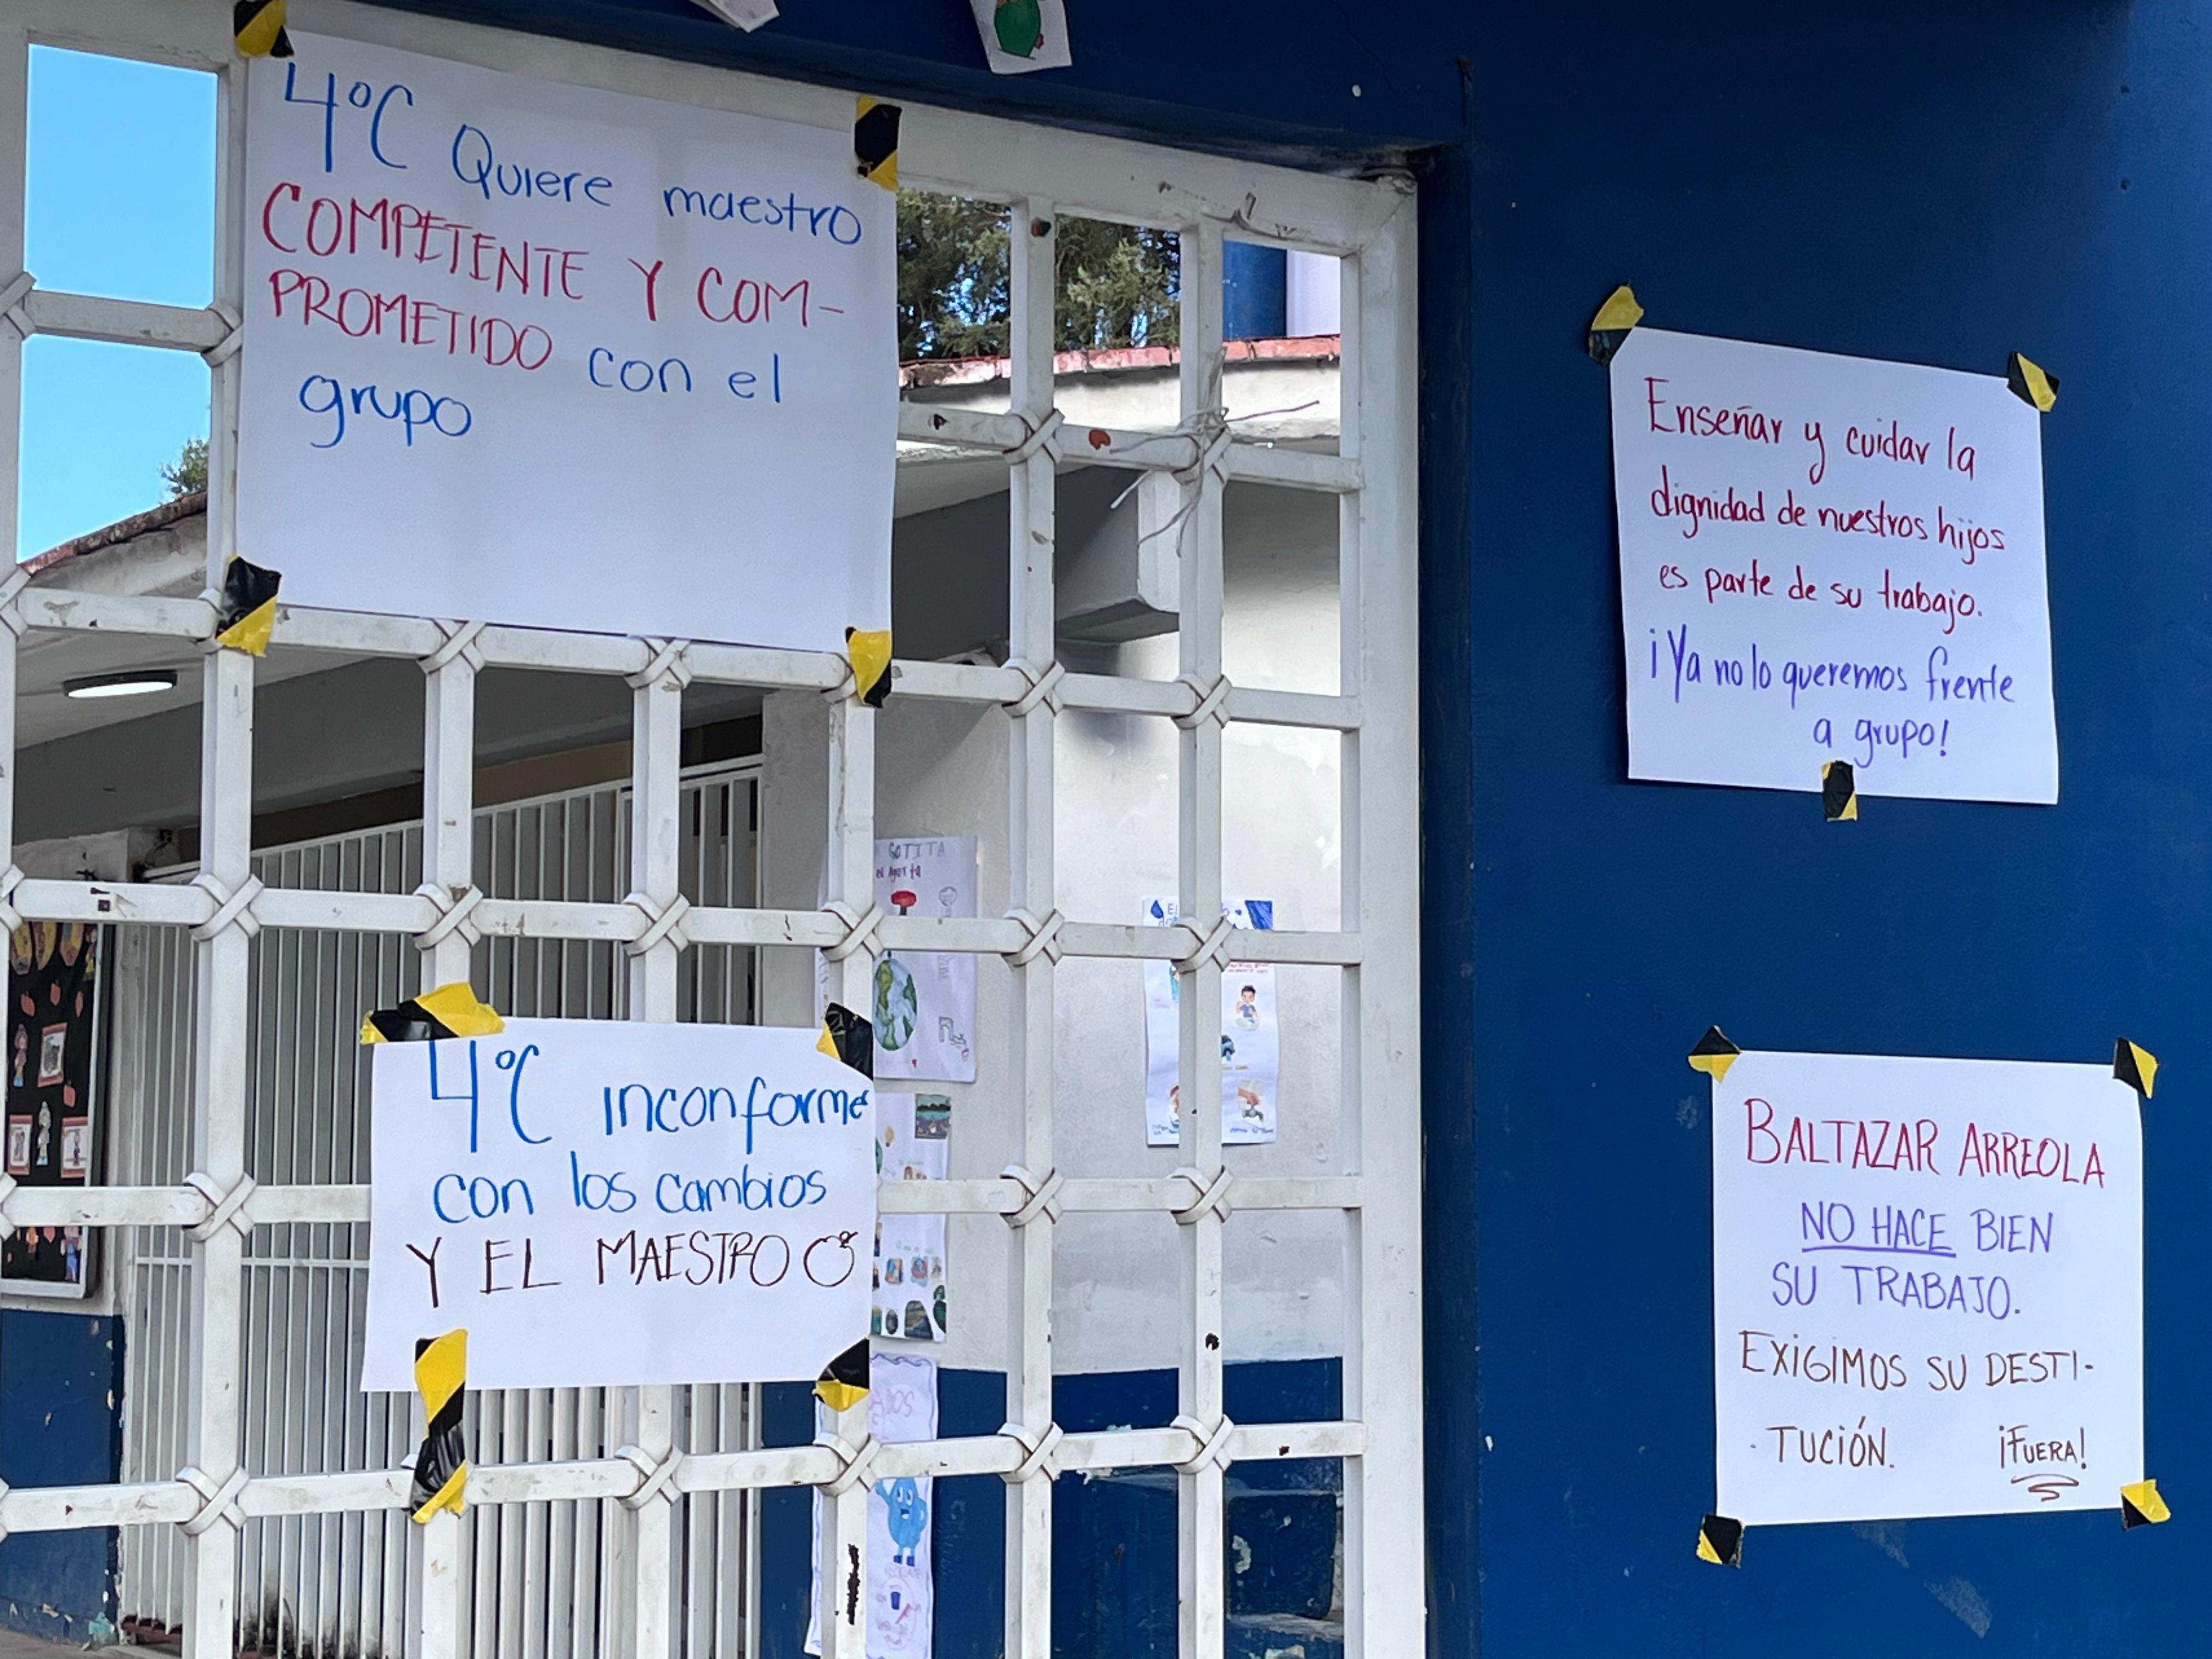 4°C Quiere maestro
COMPETENTE Y COM-
PROMETIDO con el
grupo
4°C inconforme
con los cambios
Y EL MAESTRO
Enseñar y cuidar la
dignidad de nuestros hijos
es parte de su trabajo.
¡Ya no lo queremos frente
a grupo!
BALTAZAR ARREOLA
NO HACE BIEN
SU TRABAJO.
EXIGIMOS SU DESTI-
TUCIÓN. ¡FUERA!
GOTITA